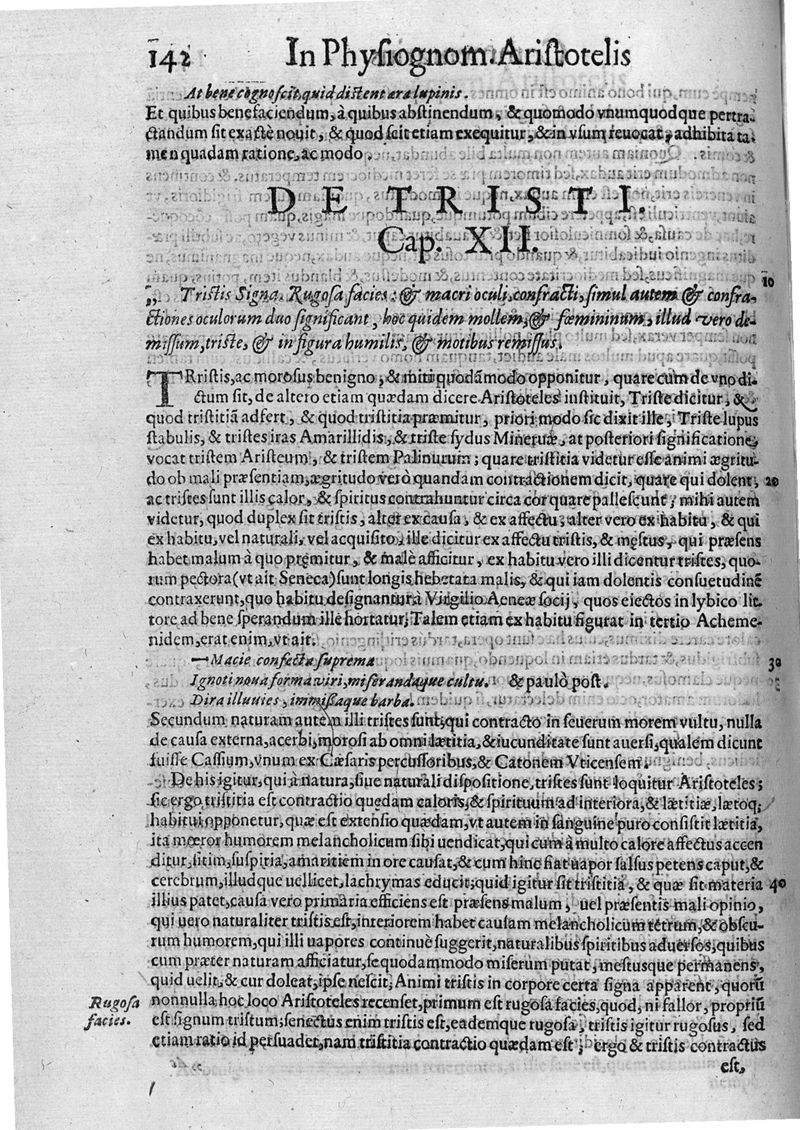 142 In Physiognom. Aristotelis
At bene cognoscit, quid distent æra lupinis.
Et quibus benefaciendum, à quibus abstinendum, & quomodo vnumquodque pertra-
ctandum sit exactè nouit, & quod scit etiam exequitur, & in vsum reuocat, adhibita ta-
men quadam ratione, ac modo.
DE TRISTI,
Cap. XII.
10
„ Tristis Signa. Rugosa facies: & macri oculi, confracti, simul autem & confra-
ctiones oculorum duo significant, hoc quidem mollem, & fœmininum, illud vero de-
missum, triste, & in figura humilis, & motibus remissus.
TRristis, ac morosus benigno, & miti quodāmodo opponitur, quare cum de vno di-
ctum sit, de altero etiam quædam dicere Aristoteles instituit, Triste dicitur, &
quod tristitiā adfert, & quod tristitia præmitur, priori modo sic dixit ille, Triste lupus
stabulis, & tristes iras Amarillidis, & triste sydus Mineruæ, at posteriori significatione,
vocat tristem Aristeum, & tristem Palinurum; quare tristitia videtur esse animi ægritu-
do ob mali præsentiam, ægritudo verò quandam contractionem dicit, quare qui dolent, 20
ac tristes sunt illis calor, & spiritus contrahuntur circa cor quare pallescunt; mihi autem
videtur, quod duplex sit tristis, alter ex causa, & ex affectu, alter vero ex habitu, & qui
ex habitu, vel naturali, vel acquisito, ille dicitur ex affectu tristis, & męstus, qui præsens
habet malum à quo premitur, & malè afficitur, ex habitu vero illi dicentur tristes, quo-
rum pectora (vt ait Seneca) sunt longis hebetata malis, & qui iam dolentis consuetudinē
contraxerunt, quo habitu designantur à Virgilio Aeneæ socij, quos eiectos in lybico lit-
tore ad bene sperandum ille hortatur; Talem etiam ex habitu figurat in tertio Acheme-
nidem, erat enim, vt ait.
—Macie confecta suprema 30
Ignoti noua forma viri, miserandaque cultu. & paulò post.
Dira illuuies, immissaque barba.
Secundum naturam autem illi tristes sunt, qui contracto in seuerum morem vultu, nulla
de causa externa, acerbi, morosi ab omni lætitia, & iucunditate sunt auersi, qualem dicunt
fuisse Cassium, vnum ex Cæsaris percussoribus, & Catonem Vticensem.
De his igitur, qui à natura, siue naturali dispositione, tristes sunt loquitur Aristoteles;
sic ergo tristitia est contractio quędam caloris, & spirituum ad interiora, & lætitiæ, lætoq;
habitui opponetur, quæ est extensio quædam, vt autem in sanguine puro consistit lætitia,
ita mœror humorem melancholicum sibi uendicat, qui cum à multo calore affectus accen
ditur, sitim, suspiria, amaritiem in ore causat, & cum hinc fiat uapor salsus petens caput, &
cerebrum, illudque uellicet, lachrymas educit; quid igitur sit tristitia, & quæ sit materia 40
illius patet, causa vero primaria efficiens est præsens malum, uel præsentis mali opinio,
qui uero naturaliter tristis est, interiorem habet causam melancholicum tetrum, & obscu-
rum humorem, qui illi uapores continuè suggerit, naturalibus spiritibus aduersos, quibus
cum præter naturam afficiatur, se quodammodo miserum putat, mestusque permanens,
quid uelit, & cur doleat, ipse nescit; Animi tristis in corpore certa signa apparent, quorū
Rugosa nonnulla hoc loco Aristoteles recenset, primum est rugosa facies, quod, ni fallor, propriū
facies. est signum tristum; senectus enim tristis est, eademque rugosa, tristis igitur rugosus, sed
etiam ratio id persuadet, nam tristitia contractio quædam est; ergo & tristis contractus
est,